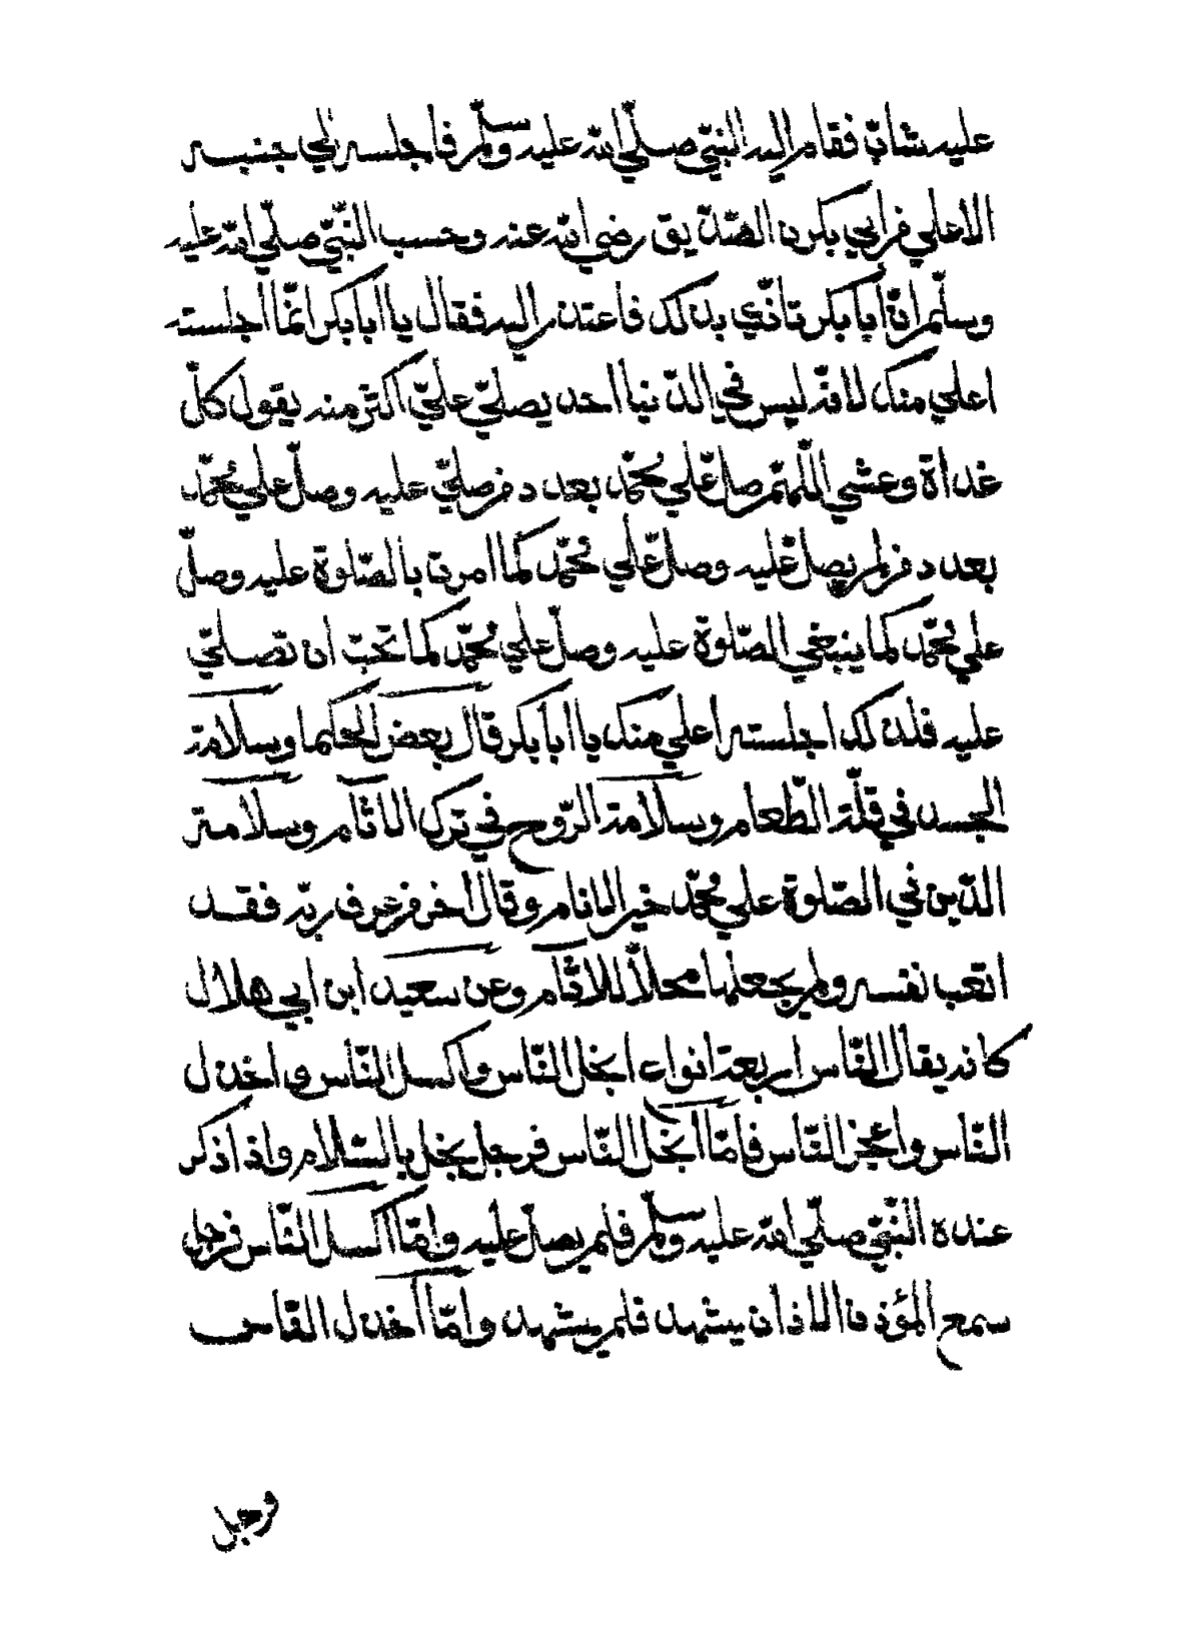 عليه شابّ فقام اليه النبيّ صلّي الله عليه وسلّم فاجلسه الي جنبه
الاعلي من ابي بكرن الصّدّيق رضي الله عنه وحسب النّبيّ صلّي الله عليه
وسلّم انّ أبا بكر تاذّي بذلك فاعتذر اليه فقال يا ابا بكر انّما اجلسته
اعلي منك لانّه ليس في الدّنيا احد يصلّي عليّ اكثر منه يقول كلّ
غداة وعشي اللّهمّ صلّ علي محمّد بعدد من صلّي عليه وصلّ علي محمّد
بعدد من لم يصلّ عليه وصلّ علي محمّد كما امرت بالصّلوة عليه وصلّ
علي محمّد كما ينبغي الصّلوة عليه وصلّ علي محمّد كما تحبّ ان تصلّي
عليه فلذلك اجلسته اعلي منك يا ابا بكر قال بعض الحكما وسلامة
الجسد في قلّة الطّعام وسلامة الرّوح في ترك الاثام وسلامة
الدّين في الصّلوة علي محمّد خير الانام وقال اخر من عرف ربّه فقد
اتعب نفسه ولم يجعلها محلاّ للاثام وعن سعيد ابن ابي هلال
كانه يقال النّاس اربعة انواع ابخل النّاس واكسل النّاس واخذل
النّاس واعجز النّاس فامّا ابخل النّاس فرجل يبخل بالسّلام واذا ذكر
عنده النّبيّ صلّي الله عليه وسلّم فلم يصلّ عليه وامّا اكسل النّاس فرجل
سمع المؤذن الاذان يشهد فلم يشهد وامّا أخذل النّاس
فرجل